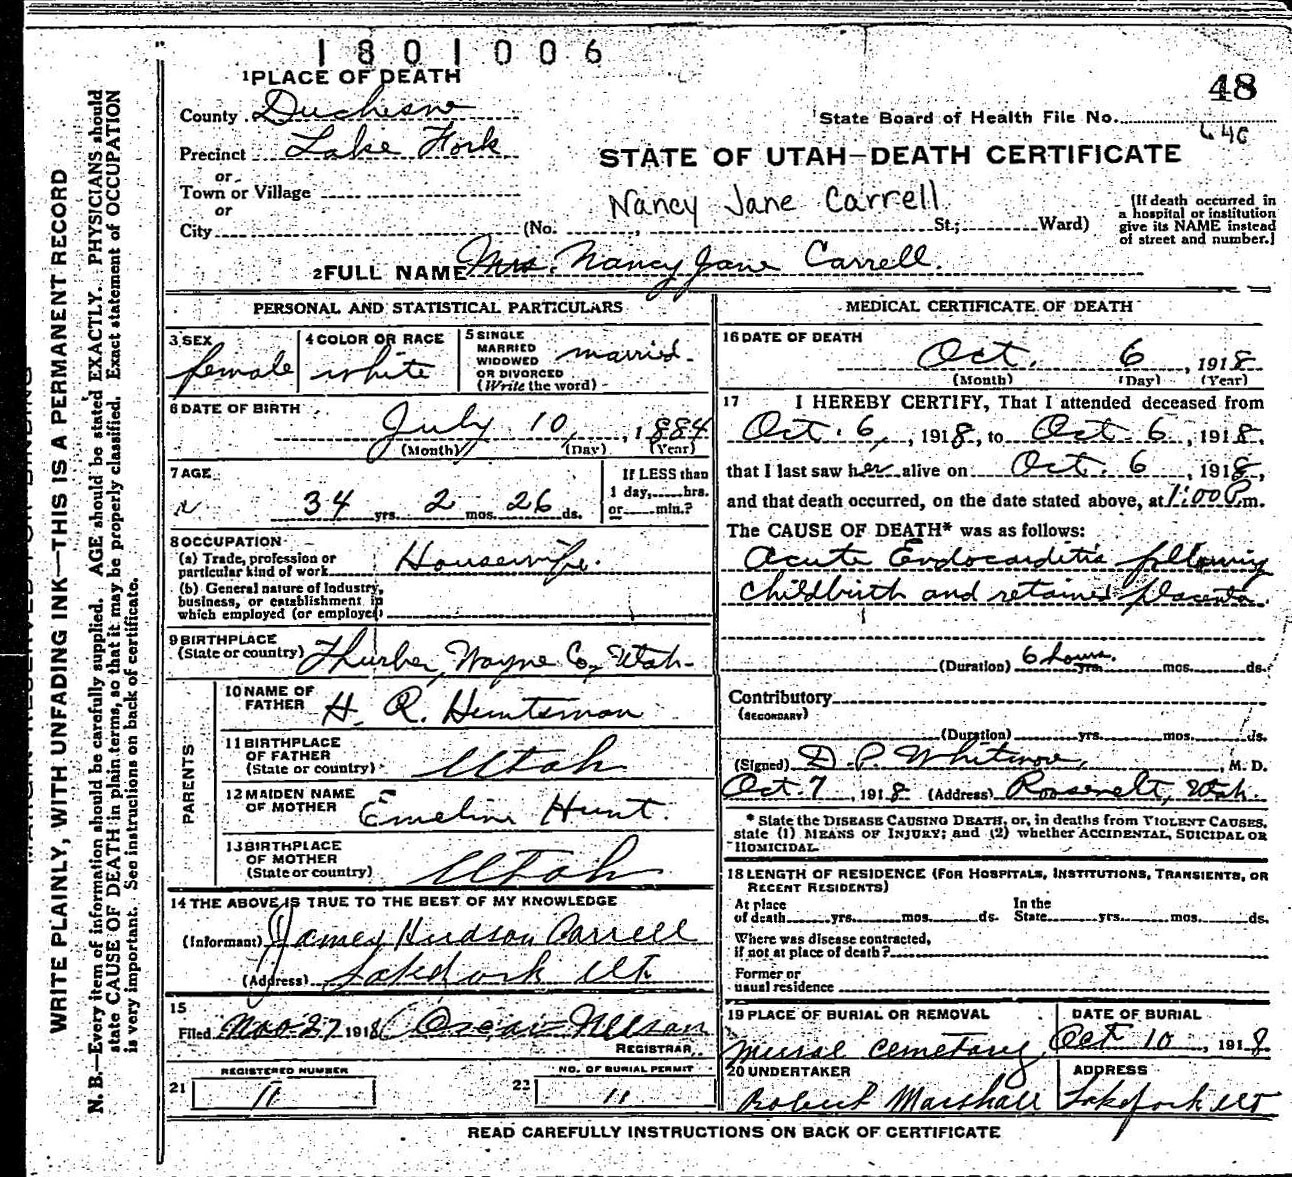 1801006
48
1 PLACE OF DEATH
County Duchesne
State Board of Health File No.
Precinct Lake Fork
STATE OF UTAH—DEATH CERTIFICATE
or
Town or Village
Nancy Jane Carrell
or
City (No. , St.; Ward)
[If death occurred in
a hospital or institution
give its NAME instead
of street and number.]
2 FULL NAME Mrs. Nancy Jane Carrell.
PERSONAL AND STATISTICAL PARTICULARS
3 SEX
female
4 COLOR OR RACE
white
5 SINGLE
MARRIED
WIDOWED
OR DIVORCED
(Write the word)
married.
6 DATE OF BIRTH
July 10, 1884
(Month) (Day) (Year)
7 AGE
34 yrs. 2 mos. 26 ds.
If LESS than
1 day, hrs.
or min.?
8 OCCUPATION
(a) Trade, profession or
particular kind of work Housewife.
(b) General nature of Industry,
business, or establishment in
which employed (or employer)
9 BIRTHPLACE
(State or country) Thurber, Wayne Co, Utah
PARENTS
10 NAME OF
FATHER H. R. Huntsman
11 BIRTHPLACE
OF FATHER
(State or country) Utah
12 MAIDEN NAME
OF MOTHER Emeline Hunt.
13 BIRTHPLACE
OF MOTHER
(State or country) Utah
14 THE ABOVE IS TRUE TO THE BEST OF MY KNOWLEDGE
(Informant) James Hudson Carrell
(Address) Lakefork Ut
15
Filed Nov 27 1918 Oscar Wilson
REGISTRAR
21 REGISTERED NUMBER
11
22 NO. OF BURIAL PERMIT
11
MEDICAL CERTIFICATE OF DEATH
16 DATE OF DEATH
Oct. 6, 1918
(Month) (Day) (Year)
17 I HEREBY CERTIFY, That I attended deceased from
Oct. 6, 1918, to Oct. 6, 1918,
that I last saw her alive on Oct. 6, 1918,
and that death occurred, on the date stated above, at 1:00 P.m.
The CAUSE OF DEATH* was as follows:
Acute Endocarditis following
childbirth and retained placenta.
(Duration) 6 hours. yrs. mos. ds.
Contributory
(SECONDARY)
(Duration) yrs. mos. ds.
(Signed) D. P. Whitmore, M. D.
Oct. 7, 1918 (Address) Roosevelt, Utah.
* State the DISEASE CAUSING DEATH, or, in deaths from VIOLENT CAUSES,
state (1) MEANS OF INJURY; and (2) whether ACCIDENTAL, SUICIDAL OR
HOMICIDAL.
18 LENGTH OF RESIDENCE (FOR HOSPITALS, INSTITUTIONS, TRANSIENTS, OR
RECENT RESIDENTS)
At place
of death yrs. mos. ds.
In the
State yrs. mos. ds.
Where was disease contracted,
if not at place of death?
Former or
usual residence
19 PLACE OF BURIAL OR REMOVAL
Cemetary
DATE OF BURIAL
Oct 10, 1918
20 UNDERTAKER
Robert Marshall
ADDRESS
Lakefork Ut
READ CAREFULLY INSTRUCTIONS ON BACK OF CERTIFICATE
WRITE PLAINLY, WITH UNFADING INK—THIS IS A PERMANENT RECORD
N. B.—Every item of information should be carefully supplied. AGE should be stated EXACTLY. PHYSICIANS should
state CAUSE OF DEATH in plain terms, so that it may be properly classified. Exact statement of OCCUPATION
is very important. See instructions on back of certificate.